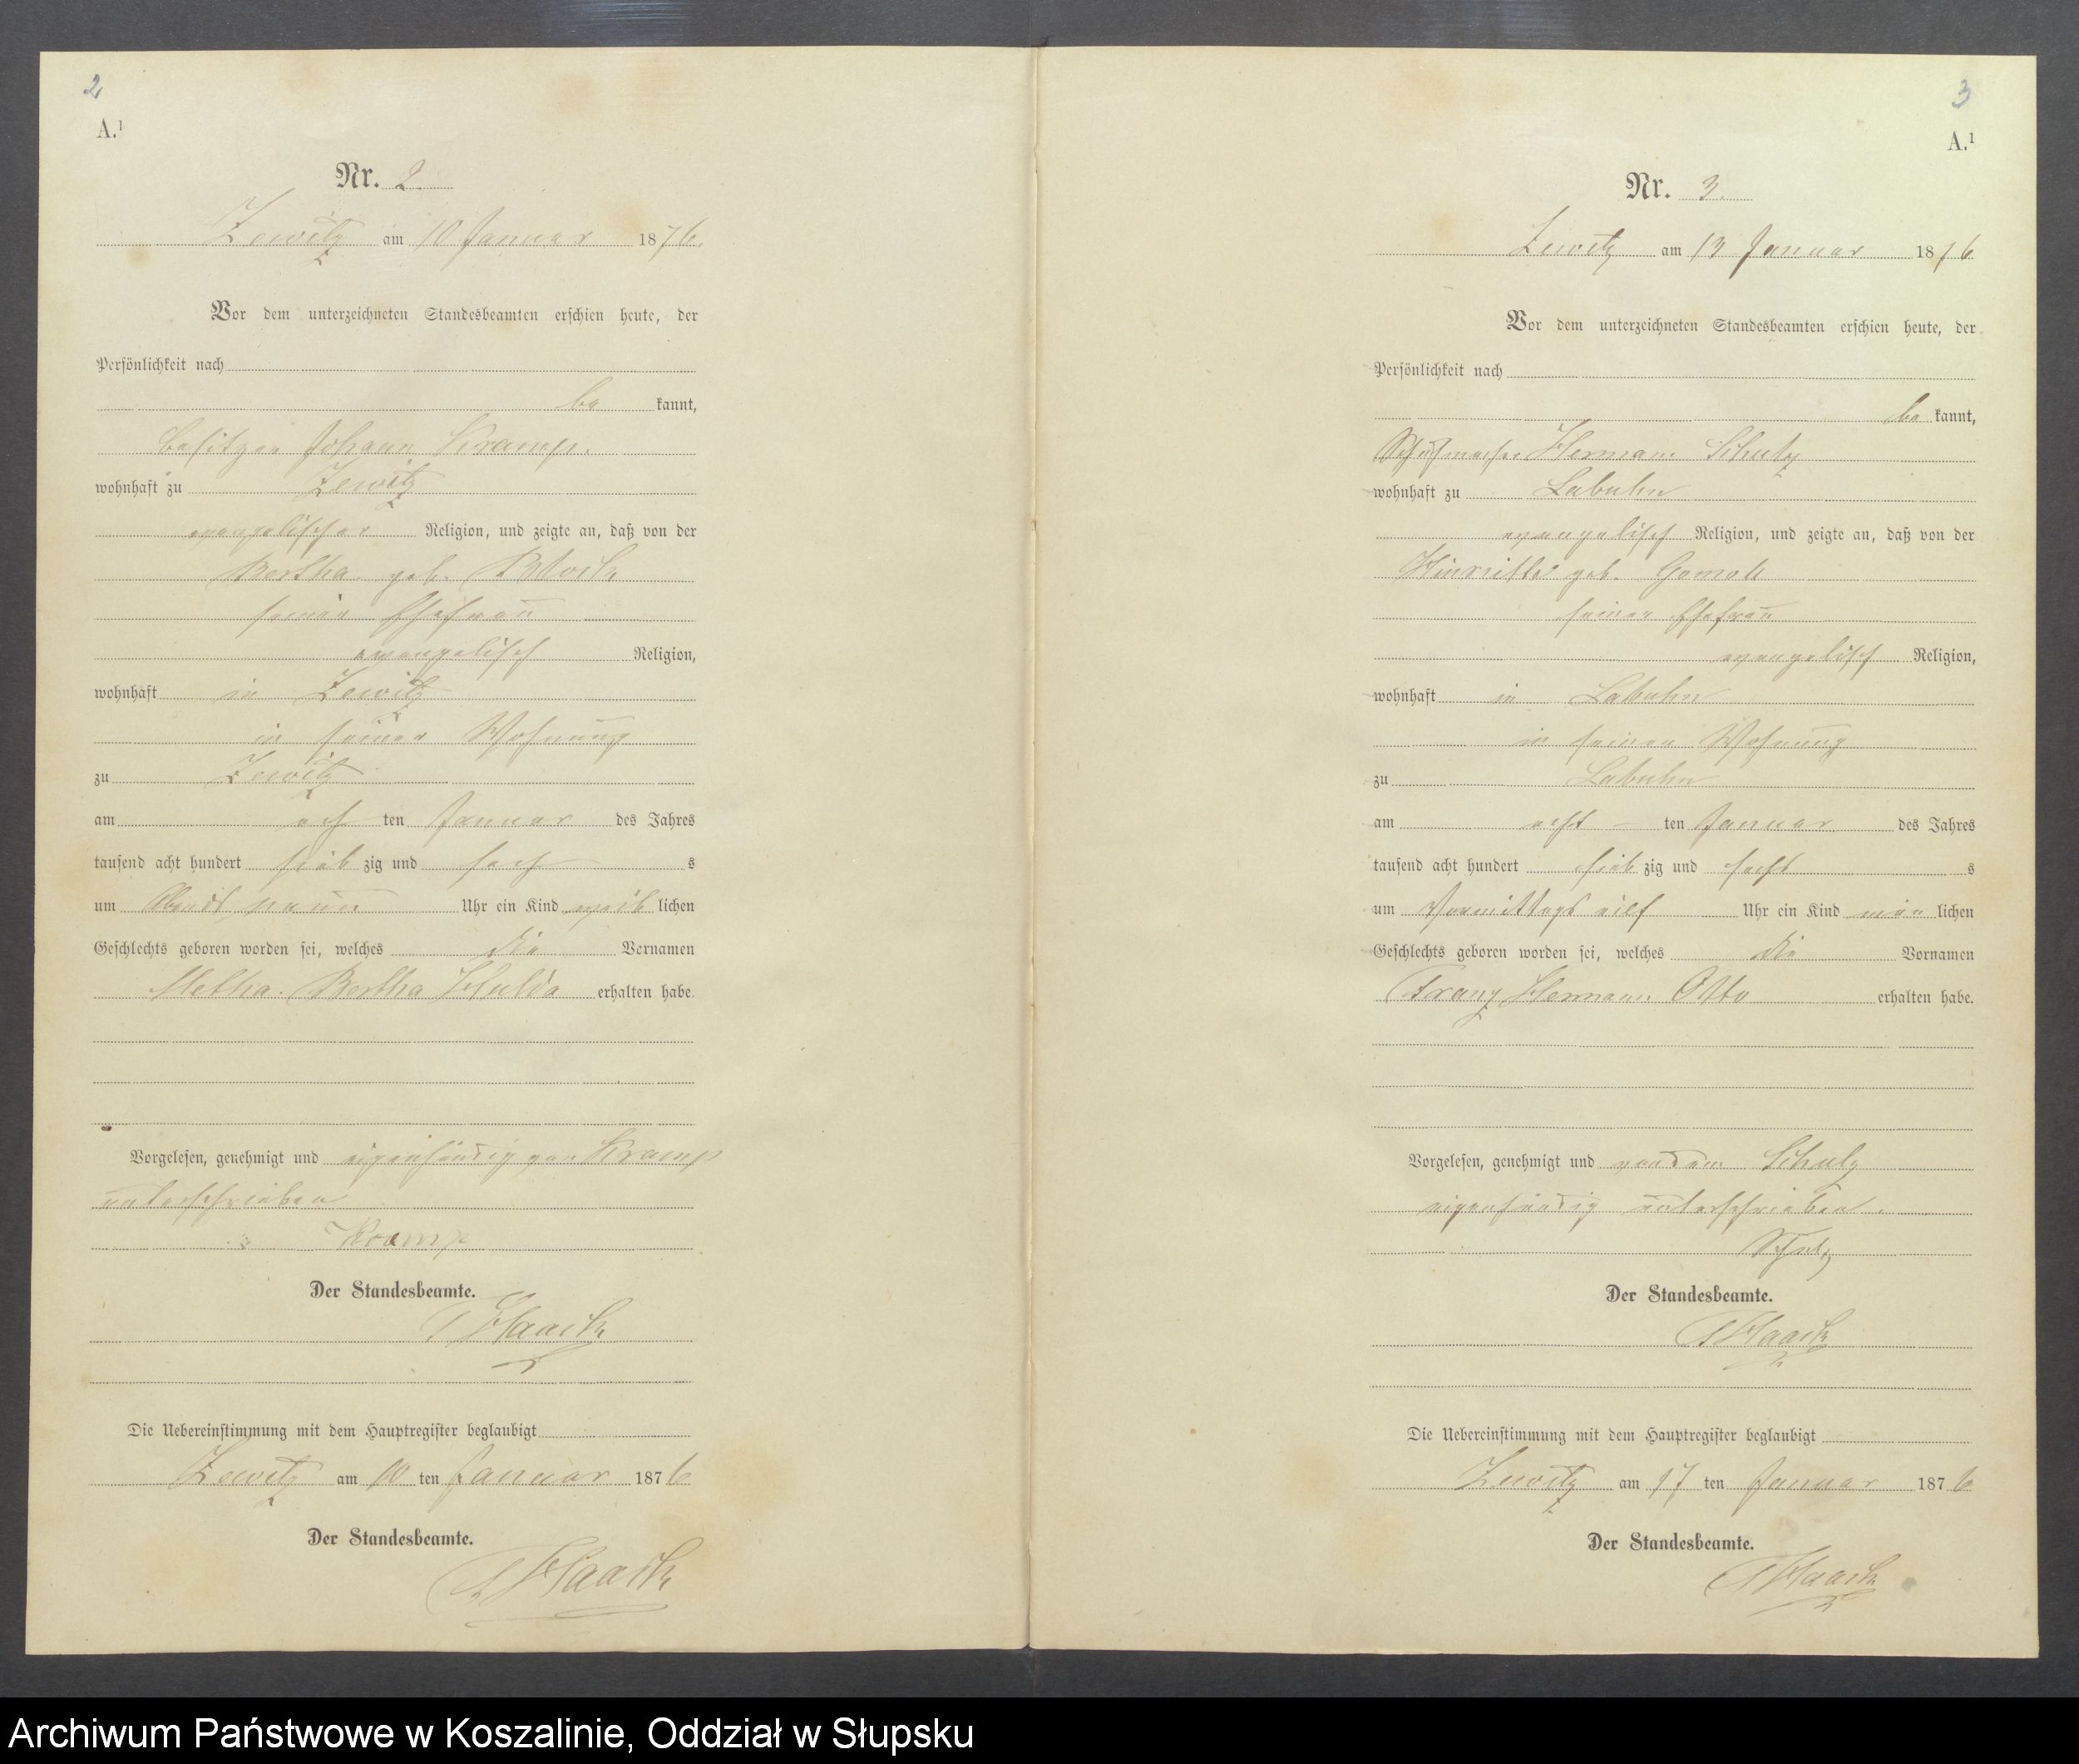 2
A.¹
Nr. 2.
Zewitz am 10 Januar 1876.
Vor dem unterzeichneten Standesbeamten erschien heute, der
Persönlichkeit nach
be kannt,
Besitzer Johann Kramp.
wohnhaft zu Zewitz
evangelischer Religion, und zeigte an, daß von der
Bertha geb. Block
seiner Ehefrau
evangelisch Religion,
wohnhaft in Zewitz
in seiner Wohnung
zu Zewitz
am ach ten Januar des Jahres
tausend acht hundert sieb zig und sech s
um Abends neun Uhr ein Kind weib lichen
Geschlechts geboren worden sei, welches die Vornamen
Metha Bertha Hulda erhalten habe.
Vorgelesen, genehmigt und eigenhändig von Kramp
unterschrieben
Kramp
Der Standesbeamte.
Haack
Die Uebereinstimmung mit dem Hauptregister beglaubigt
Zewitz am 10 ten Januar 1876
Der Standesbeamte.
Haack
3
A.¹
Nr. 3.
Zewitz am 13 Januar 1876
Vor dem unterzeichneten Standesbeamten erschien heute, der
Persönlichkeit nach
be kannt,
Schuhmacher Hermann Schulz
wohnhaft zu Labuhn
evangelisch Religion, und zeigte an, daß von der
Hinriette geb. Gomoll
seiner Ehefrau
evangelisch Religion,
wohnhaft in Labuhn
in seiner Wohnung
zu Labuhn
am acht ten Januar des Jahres
tausend acht hundert sieb zig und sechs s
um Vormittags eilf Uhr ein Kind män lichen
Geschlechts geboren worden sei, welches die Vornamen
Franz Hermann Otto erhalten habe.
Vorgelesen, genehmigt und von dem Schulz
eigenhändig unterschrieben.
Schulz
Der Standesbeamte.
Haack
Die Uebereinstimmung mit dem Hauptregister beglaubigt
Zewitz am 17 ten Januar 1876
Der Standesbeamte.
Haack
Archiwum Państwowe w Koszalinie, Oddział w Słupsku